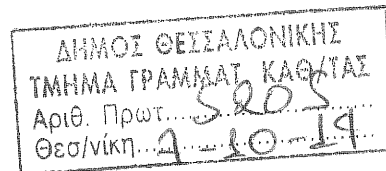 ΔΗΜΟΣ ΘΕΣΣΑΛΟΝΙΚΗΣ
ΤΜΗΜΑ ΓΡΑΜΜΑΤ. ΚΑΘ/ΤΑΣ
Αριθ. Πρωτ.....5205
Θεσ/νίκη...1-10-19